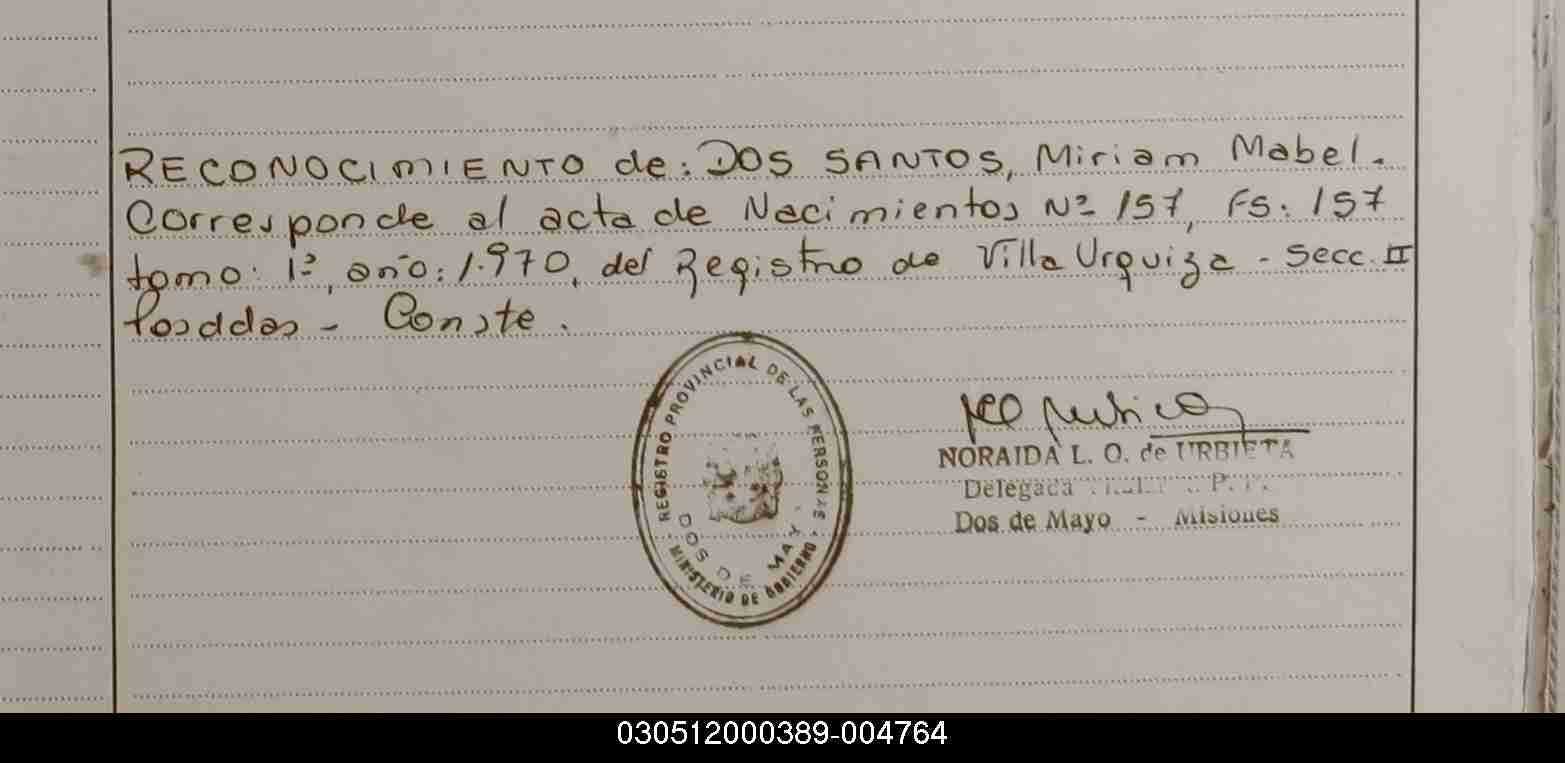 RECONOCIMIENTO de: DOS SANTOS, Miriam Mabel.
Corresponde al acta de Nacimientos Nº 157, Fs: 157
tomo: 1º, año: 1.970, del Registro de Villa Urquiza - Secc. II
Posadas - Conste.
REGISTRO PROVINCIAL DE LAS PERSONAS
DOS DE MAYO
MINISTERIO DE GOBIERNO
NORAIDA L. O. de URBIETA
Delegada
Dos de Mayo - Misiones
030512000389-004764